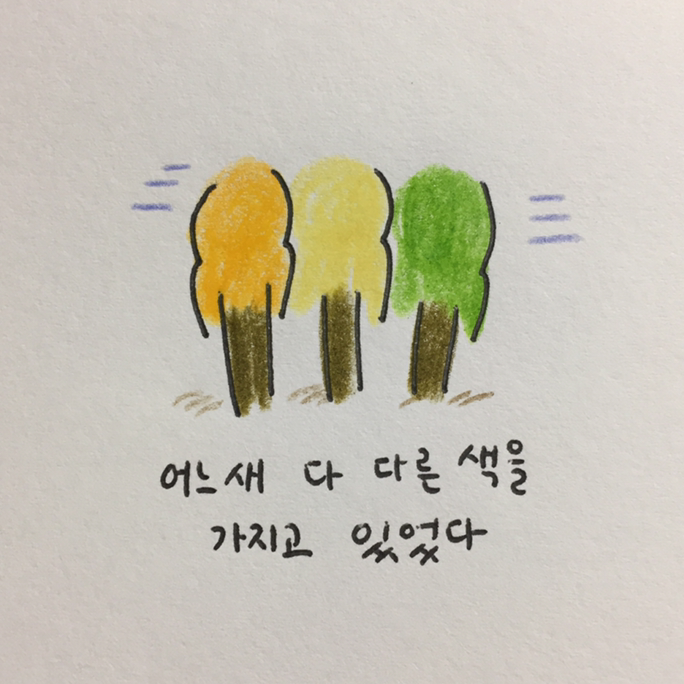 어느새 다 다른 색을
가지고 있었다